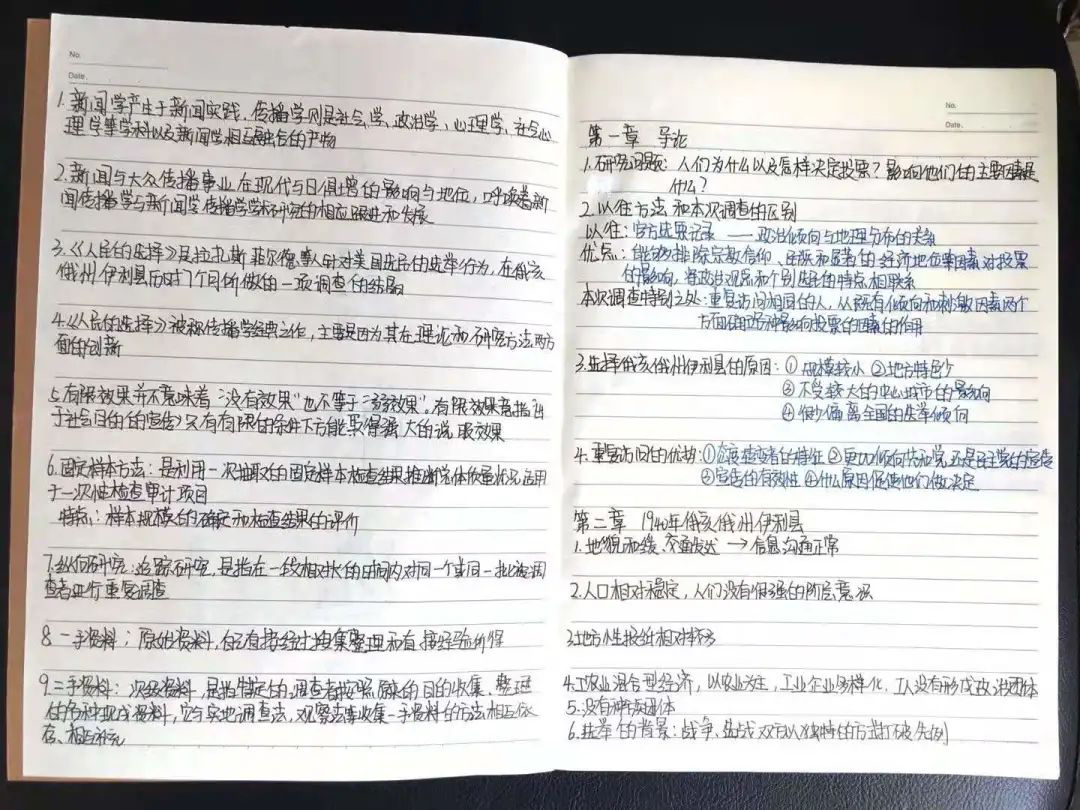 No.
Date.
1.新闻学产生于新闻实践,传播学则是社会学、政治学、心理学、社会心
理学等学科以及新闻学相互融合的产物
2.新闻与大众传播事业在现代与日俱增的影响与地位,呼唤着新
闻传播学与新闻学传播学学科研究的相应跟进和发展
3.《人民的选择》是拉扎斯菲尔德等人针对美国选民的选举行为,在俄亥
俄州伊利县历时7个月所做的一项调查的结晶
4.《人民的选择》被称传播学经典之作,主要是因为其在理论和研究方法两方
面的创新
5.有限效果并不意味着“没有效果”也不等于“弱效果”。有限效果意指出
于社会目的的宣传只有有限的条件下方能获得强大的说服效果
6.固定样本方法:是利用一次抽取的固定样本检查结果推断总体质量状况适用
于一次性检查审计项目
特点:样本规模的确定和检查结果的评价
7.纵向研究:追踪研究,是指在一段相对长的时间内对同一个或同一批被调
查者进行重复调查
8.一手资料:原始资料,自己直接经过搜集整理和直接经验所得
9.二手资料:次级资料,是指特定的调查者按照原来的目的收集、整理
的各种现成资料,它与实地调查法,观察法等收集一手资料的方法相互依
存、相互补充
No.
Date.
第一章 导论
1.研究问题:人们为什么以及怎样决定投票?影响他们的主要因素是
什么?
2.以往方法和本次调查的区别
以往:官方结果记录——政治倾向与地理分布的关系
优点:能够排除宗教信仰、民族和显著的经济地位等因素对投票
的影响,将政治观点和个别选民的特点相联系
本次调查特别之处:重复访问相同的人,从既有倾向和刺激因素两个
方面确定各种影响投票的因素的作用
3.选择俄亥俄州伊利县的原因:①规模较小 ②地方特色少
③不受较大的中心城市的影响
④很少偏离全国的选举倾向
4.重复访问的优势:①态度改变者的特征 ②更加倾向共和党还是民主党的宣传
③宣传的有效性 ④什么原因促使他们做决定
第二章 1940年俄亥俄州伊利县
1.地貌和缓,交通发达→信息沟通正常
2.人口相对稳定,人们没有很强的阶层意识
3.地方性报纸相对
4.工农业混合型经济,以农业为主,工业企业多样化,工人没有形成政治团体
5.没有种族团体
6.选举的背景:战争、选战双方以独特的方式打破先例